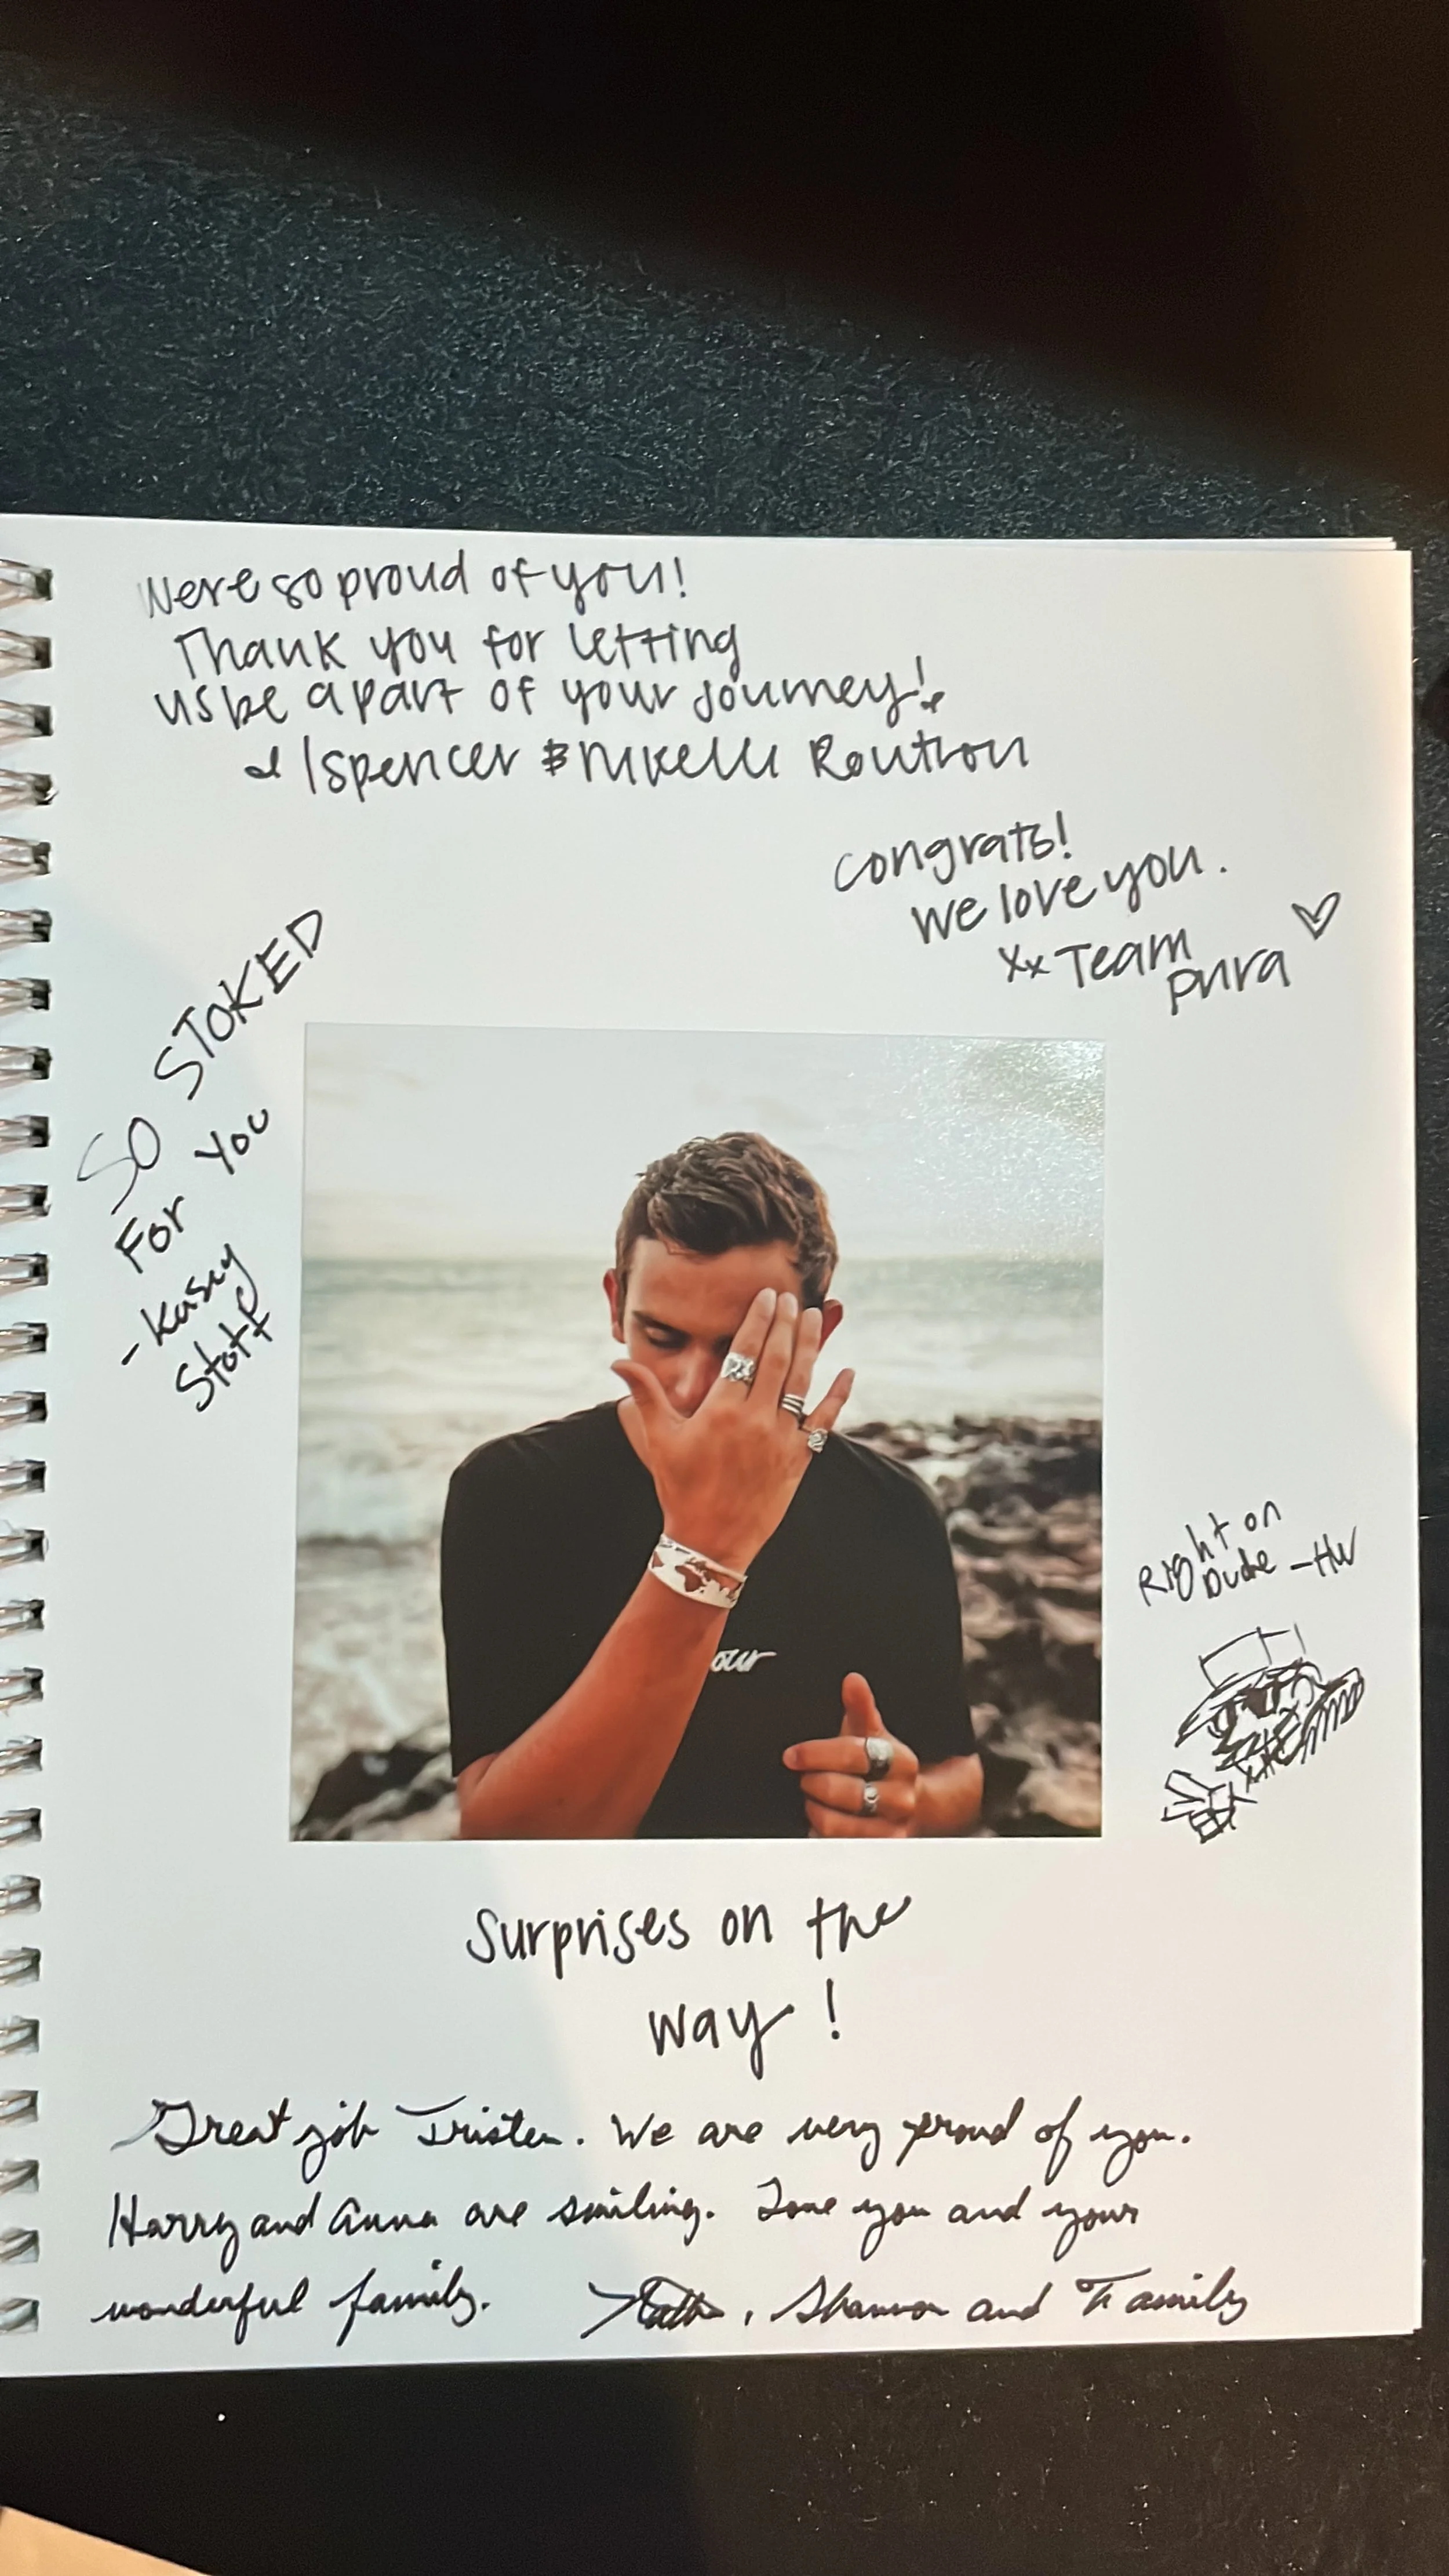 Were so proud of you!
Thank you for letting
us be a part of your journey!
Spencer & Nikelli Routson
congrats!
we love you.
xx Team
pura
SO STOKED
For You
- Kasey
Stott
our
Right on
Dude - HW
Surprises on the
way!
Great job Tristen. We are very proud of you.
Harry and Anna are smiling. Love you and your
wonderful family. , Shannon and Family